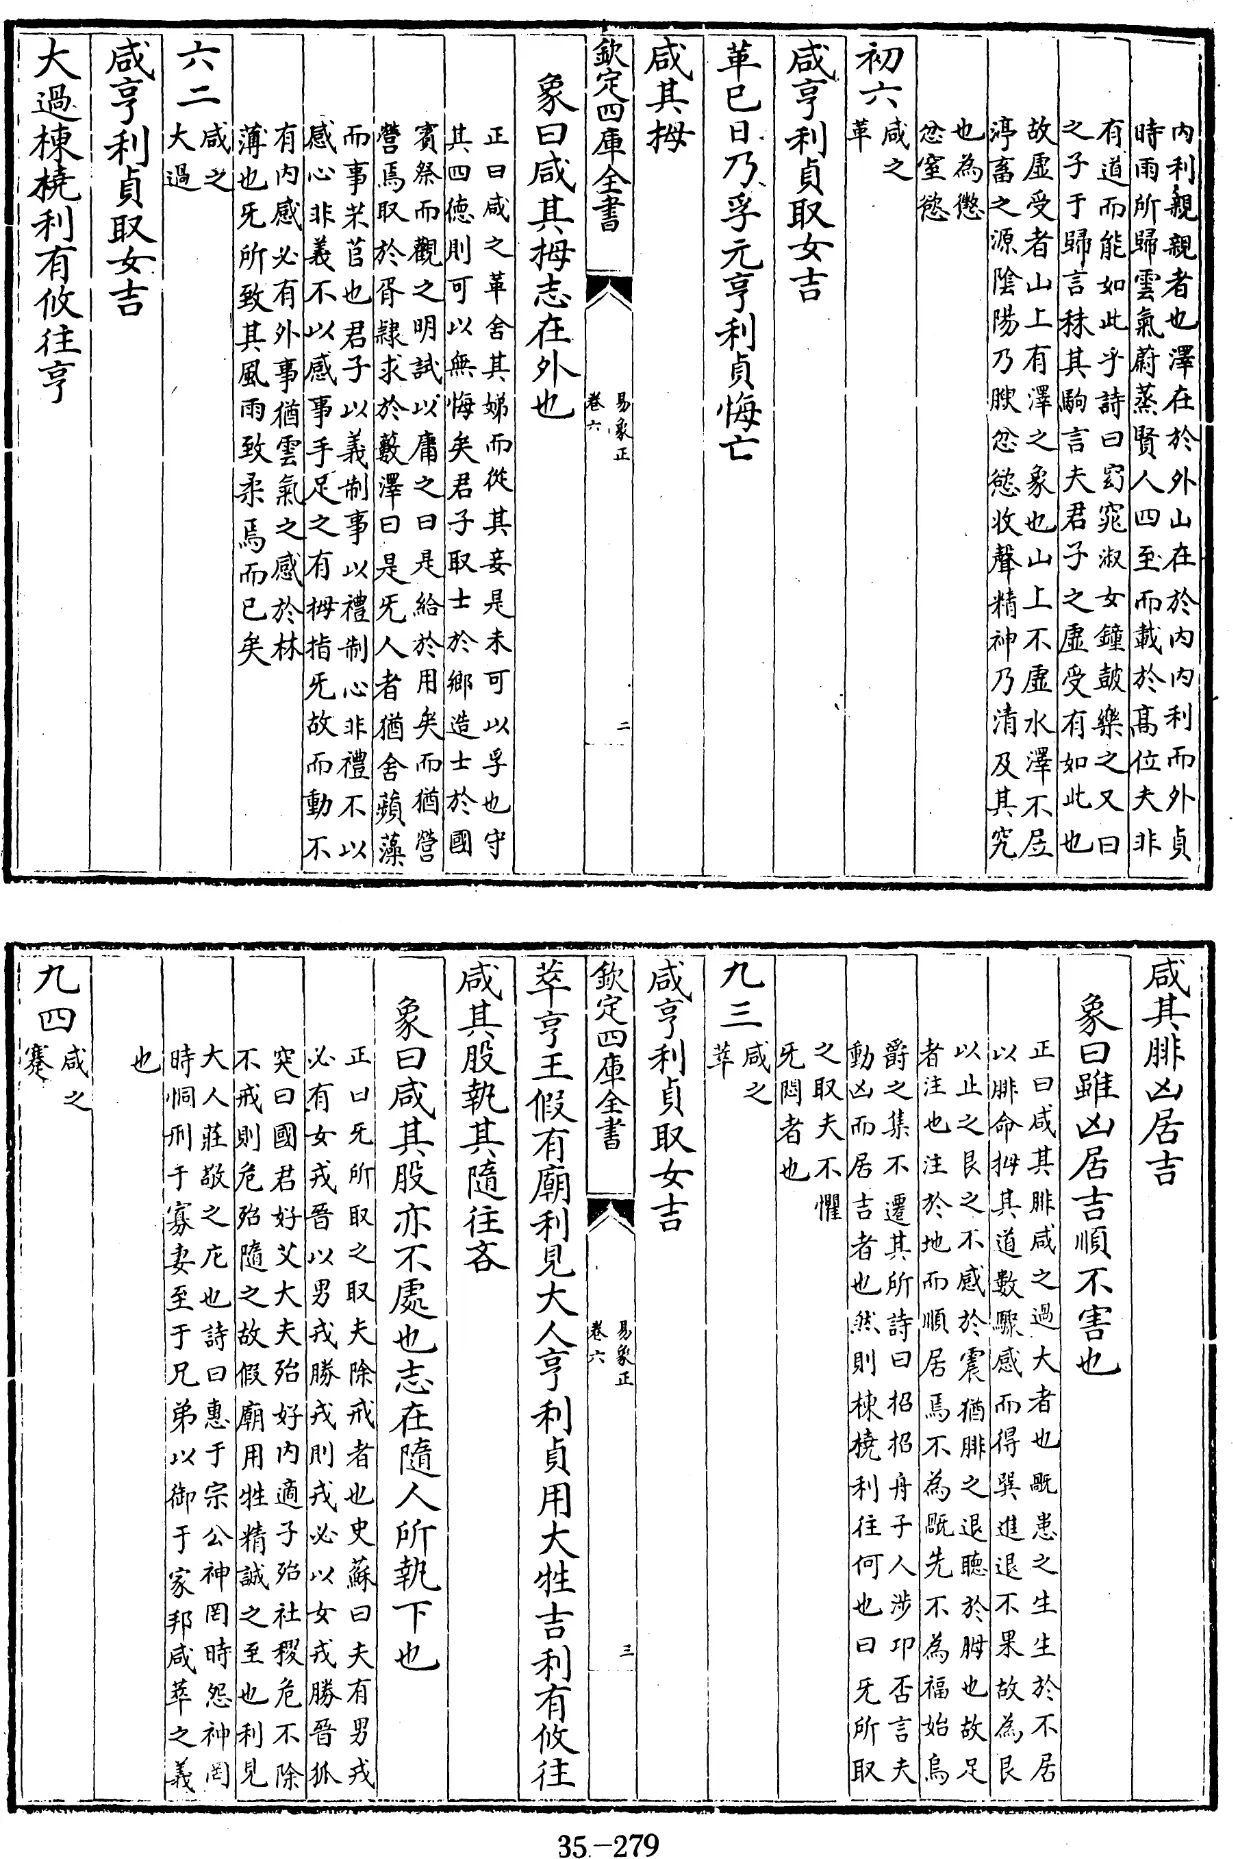 内利親親者也澤在於外山在於内内利而外貞
時雨所歸雲氣蔚蒸賢人四至而載於髙位夫非
有道而能如此乎詩曰窈窕淑女鐘鼓樂之又曰
之子于歸言秣其駒言夫君子之虛受有如此也
故虛受者山上有澤之象也山上不虛水澤不居
渟畜之源陰陽乃腴忿慾收聲精神乃清及其究
也為懲
忿窒慾
初六咸之
革
咸亨利貞取女吉
革巳日乃孚元亨利貞悔亡
咸其拇
欽定四庫全書
易象正
卷六
二
象曰咸其拇志在外也
正曰咸之革舍其娣而從其妾是未可以孚也守
其四德則可以無悔矣君子取士於鄉造士於國
賓祭而觀之明試以庸之曰是給於用矣而猶營
營焉取於胥隸求於藪澤曰是旡人者猶舍蘋藻
而事芣苢也君子以義制事以禮制心非禮不以
感心非義不以感事手足之有拇指旡故而動不
有内感必有外事猶雲氣之感於林
薄也旡所致其風雨致柔焉而已矣
六二咸之
大過
咸亨利貞取女吉
大過棟橈利有攸往亨
咸其腓凶居吉
象曰雖凶居吉順不害也
正曰咸其腓咸之過大者也旤患之生生於不居
以腓命拇其道數驟感而得巽進退不果故為艮
以止之艮之不感於震猶腓之退聽於拇也故足
者注也注於地而順居焉不為旤先不為福始烏
爵之集不遷其所詩曰招招舟子人涉卬否言夫
動凶而居吉者也然則棟橈利往何也曰旡所取
之取夫不懼
旡悶者也
九三咸之
萃
咸亨利貞取女吉
欽定四庫全書
易象正
卷六
三
萃亨王假有廟利見大人亨利貞用大牲吉利有攸往
咸其股執其隨往吝
象曰咸其股亦不處也志在隨人所執下也
正曰旡所取之取夫除戒者也史蘇曰夫有男戎
必有女戎晉以男戎勝戎則戎必以女戎勝晉狐
突曰國君好艾大夫殆好内適子殆社稷危不除
不戒則危殆隨之故假廟用牲精誠之至也利見
大人莊敬之庀也詩曰惠于宗公神罔時怨神罔
時恫刑于寡妻至于兄弟以御于家邦咸萃之義
也
九四咸之
蹇
35-279